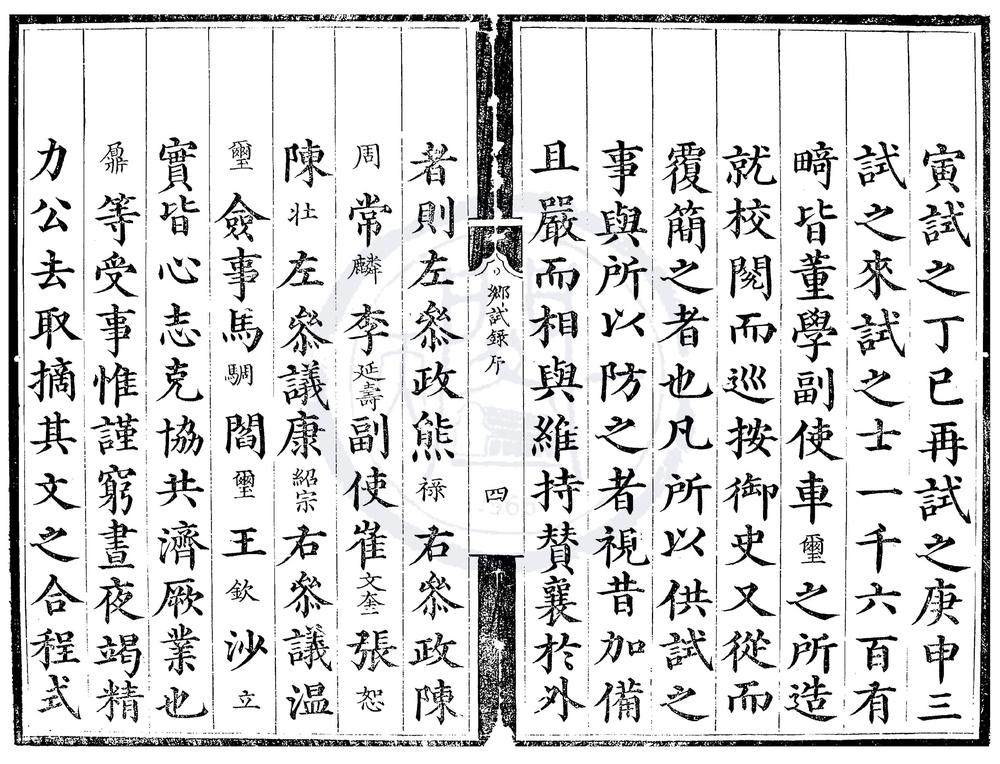 寅試之丁巳再試之庚申三
試之來試之士一千六百有
畸皆董學副使車璽之所造
就校閱而巡按御史又從而
覆簡之者也凡所以供試之
事與所以防之者視昔加備
且嚴而相與維持贊襄於外
鄉試錄序
四
者則左叅政熊祿右叅政陳
周常麟李延壽副使崔文奎張恕
陳壯左叅議康紹宗右叅議温
璽僉事馬䮄閻璽王欽沙立
實皆心志克協共濟厥業也
鼐等受事惟謹窮晝夜竭精
力公去取摘其文之合程式